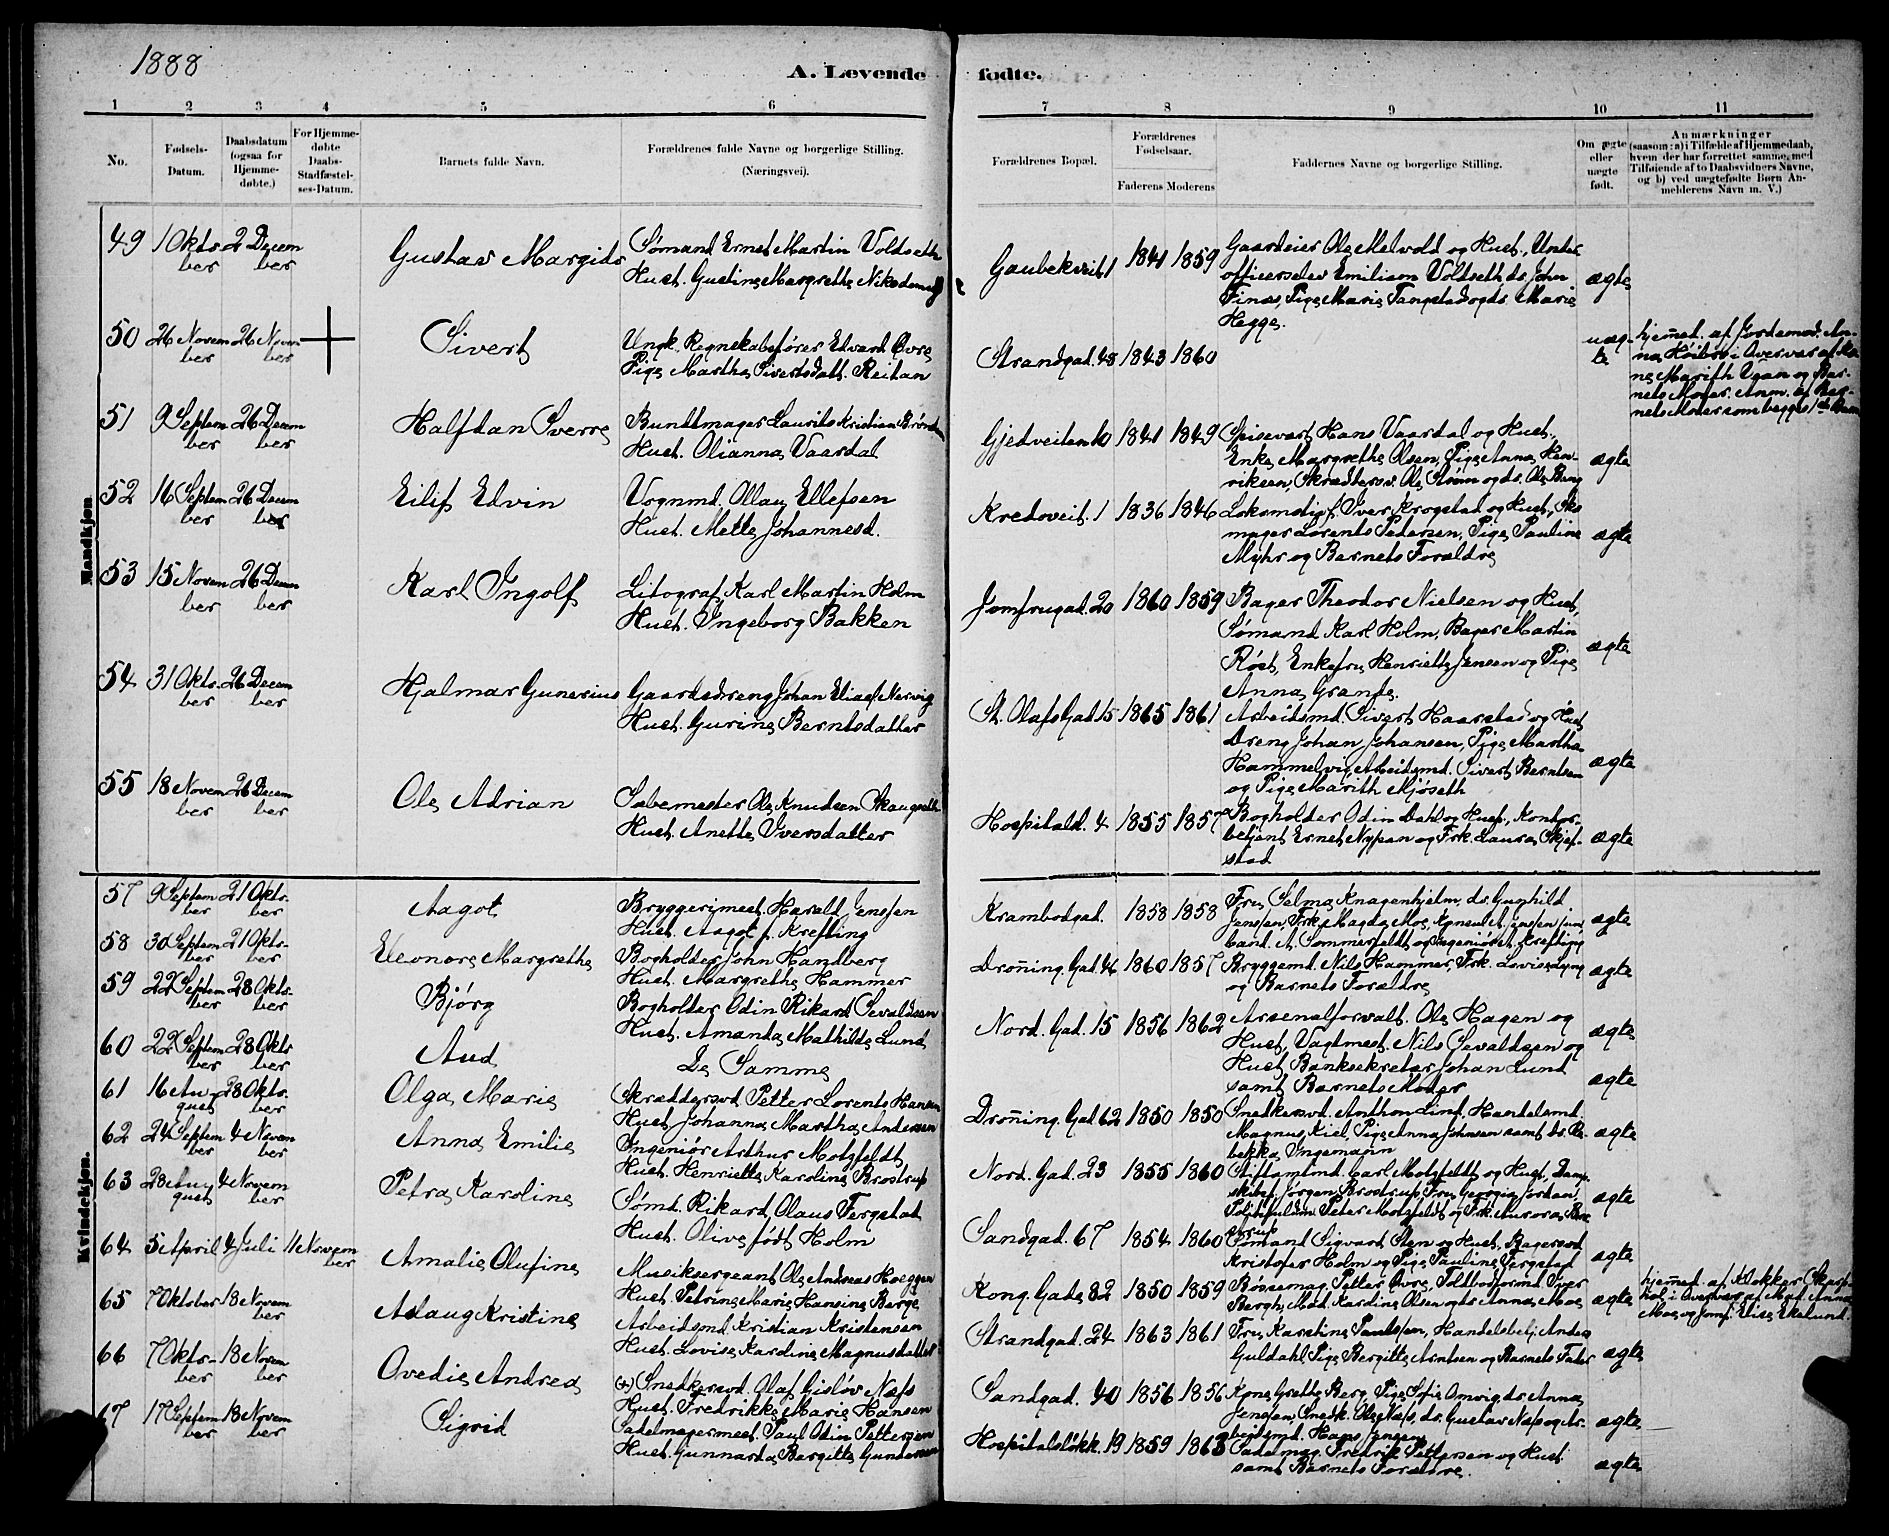 1888
A. Levende fødte.
1 2 3 4 5 6 7 8 9 10 11
No.
Fødsels-
Datum.
Daabsdatum
(ogsaa for
Hjemme-
døbte.)
For Hjemme-
døbte
Daabs-
Stadfæstel-
ses-Datum.
Barnets fulde Navn.
Forældrenes fulde Navne og borgerlige Stilling.
(Næringsvei).
Forældrenes Bopæl.
Forældrenes
Fødselsaar.
Faderens Moderens
Faddernes Navne og borgerlige Stilling.
Om ægte
eller
uægte
født.
Anmærkninger
(saasom: a) i Tilfælde af Hjemmedaab,
hvem der har forrettet samme, med
Tilføiende af to Daabsvidners Navne,
og b) ved uægtefødte Børn An-
melderens Navn m. V.)
Mandkjøn
49 1 Okto- 2 Decem
ber ber
Gustav Margido
Sømand Ernst Martin Voldseth
Hust. Gustine Margrethe Nikodemus
Gaubekveit 1 1841 1859
Gaardeier Ole Melvold og Hust., Under
officerselev Emil von Voldseth, ds. John
Finos, Pige Marie Tangstad og ds. Marie
Hegge.
ægte
50 26 Novem 26 Novem
ber ber
Sivert
Ungk. Regnskabsfører Edvard Øvre
Pige Martha Sivertsdatt. Reitan
Strandgad. 48 1843 1860
uæg-
te
hjemed. af Jordemod. An-
na Høiby i Overvær af Ma-
ne Marith Ugan og Bar-
nets Moder. Anm. af Bar-
nets Moder som begges 1ste Barn
51 9 Septem 26 Decem
ber ber
Halfdan Sverre
Bundtmager Laurits Kristian Brønd
Hust. Olianna Vaardal
Gjedveiten 10 1841 1849
Spisevært Hans Vaardal og Hust.,
Enke Margrethe Olsen, Pige Anna Hen-
riksen, Skrædders. Ole Strøm og ds. Ole Berg
ægte
52 16 Septem 26 Decem
ber ber
Eilif Edvin
Vognmd. Ollau Ellefsen
Hust. Mette Johannesd.
Kredsveit. 1 1836 1846
Lokomotivf. Iver Krogstad og Hust., Sko
mager Lorents Pedersen, Pige Pauline
Myhr og Barnets Forældre
ægte
53 15 Novem 26 Decem
ber ber
Karl Ingolf
Litograf Karl Martin Holm
Hust. Ingeborg Bakken
Jomfrugad. 20 1860 1859
Bager Theodor Nielsen og Hust,
Sømand Karl Holm, Bager Martin
Røst, Enkefru Henriette Jensen og Pige
Anna Grande.
ægte
54 31 Okto- 26 Decem
ber ber
Hjalmar Gunerius
Gaardsdreng Johan Eliasf. Nervig
Hust. Gurine Berntsdatter
St. Olafs Gad 15 1865 1861
Arbeidsmd. Sivert Haarstad og Hust
Dreng Johan Johansen, Pige Martha
Hammelvig, Arbeidsmd. Sivert Berntsen
og Pige Marith Mjøseth
ægte
55 18 Novem 26 Decem
ber ber
Ole Adrian
Sæbemester Ole Knudsen Skaugseth
Hust. Anette Iversdatter
Hospitalsl. 4 1855 1857
Bogholder Odin Dahl og Hust., Kontor-
betjent Ernst Nypan og Frk. Laura Skjef-
stad
ægte
Kvindekjøn.
57 9 Septem 21 Okto-
ber ber
Aagot
Bryggerimest. Harald Jenssen
Hust. Aagot f. Krefting
Krambodgad. 1858 1858
Fru Selma Knagenhjelm, ds. Gunhild
Jenssen, Frk. Magda Moe, Konsul A. Jenssen jun.
Cand. A. Sommerfeldt og Ingeniør A. Krefting
ægte
58 30 Septem 21 Okto-
ber ber
Eleonore Margrethe
Bogholder John Handberg
Hust. Margrethe Hammer
Droning. Gad 46 1860 1857
Bryggemd. Nils Hammer, Frk. Lovise Lyng
og Barnets Forældre
ægte
59 22 Septem 28 Okto-
ber ber
Bjørg
Bogholder Odin Rikard Sevaldsen
Hust. Amanda Mathilde Lund
Nord. Gad. 15 1856 1862
Arsenalforvalt. Ole Hagen og
Hust, Vagtmest. Nils Sevaldsen og
Hust, Banksekretær Johan Lund
samt Barnets Moder
ægte
60 22 Septem 28 Okto
ber ber
Aud
De Samme
ægte
61 16 Au- 28 Okto-
gust ber
Olga Marie
Skræddersvd. Petter Lorents Hansen
Hust. Johanna Martha Andersen
Droning. Gad 62 1850 1850
Snedkersvd. Anthon Lind, Handelsmd.
Magnus Kiel, Pige Anna Johnsen samt ds. Re-
bekka Ingemann
ægte
62 24 Septem 4 Novem
ber ber
Anna Emilie
Ingeniør Arthur Motzfeldt
Hust. Henriette Karoline Brostrup
Nord. Gad. 23 1855 1860
Stiftamtmd. Carl Motzfeldt og Hust, Damp-
skibsf. Jørgen Brostrup, Fru Georgia Jordan,
Politifuldm. Peter Motzfeldt og Frk. Aurora Bro-
strup
ægte
63 28 Au- 4 Novem
gust ber
Petra Karoline
Sømd. Rikard Olaus Fergstad
Hust. Olive født Holm
Sandgad. 67 1854 1860
Sømand Sigvard Sten og Hust, Bagersvd
Kristofer Holm og Pige Pauline Fergstad
ægte
64 5 April 4 Juli 11 Novem
ber
Amalie Olufine
Musiksergeant Ole Andreas Hoeggen
Hust. Petrine Marie Hansine Berge
Kong. Gade 82 1850 1859
Bøssemag. Petter Øvre, Toldbodformd. Iver
Bergh, Mad. Karoline Olsen og ds. Anna Moe
ægte
hjemed. af Klokker Skarp-
hol i Overvær af Mad. Anna
Moe og Jomf. Elise Eklund.
65 7 Oktober 18 Novem
ber
Aslaug Kristine
Arbeidsmd Kristian Kristensen
Hust. Lovise Kardine Magnusdatter
Strandgad. 24 1863 1861
Fru Karoline Paulssen, Handelsbetj. Anders
Guldahl, Pige Bergitte Arntsen og Barnets Fader
ægte
66 7 Okto- 18 Novem
ber ber
Ovedie Andrea
(+) Snedkersvd. Olaf Gisløv Næss
Hust. Fredrikke Marie Hansen
Sandgad. 40 1856 1856
Kone Grethe Berg, Pige Sofie Omvig, ds. Anna
Jenssen, Snedk. Ole Næss, ds. Gustav Næss og Ar-
beidsmd. Hans Jensen
ægte
67 17 Septem 18 Novem
ber ber
Sigrid
Sadelmagermest. Paul Odin Pettersen
Hust. Gunnarda Bergitte Gundersen
Hospitalsløkk. 19 1859 1863
Sadelmag. Fredrik Pettersen og Hust
samt Barnets Forældre.
ægte